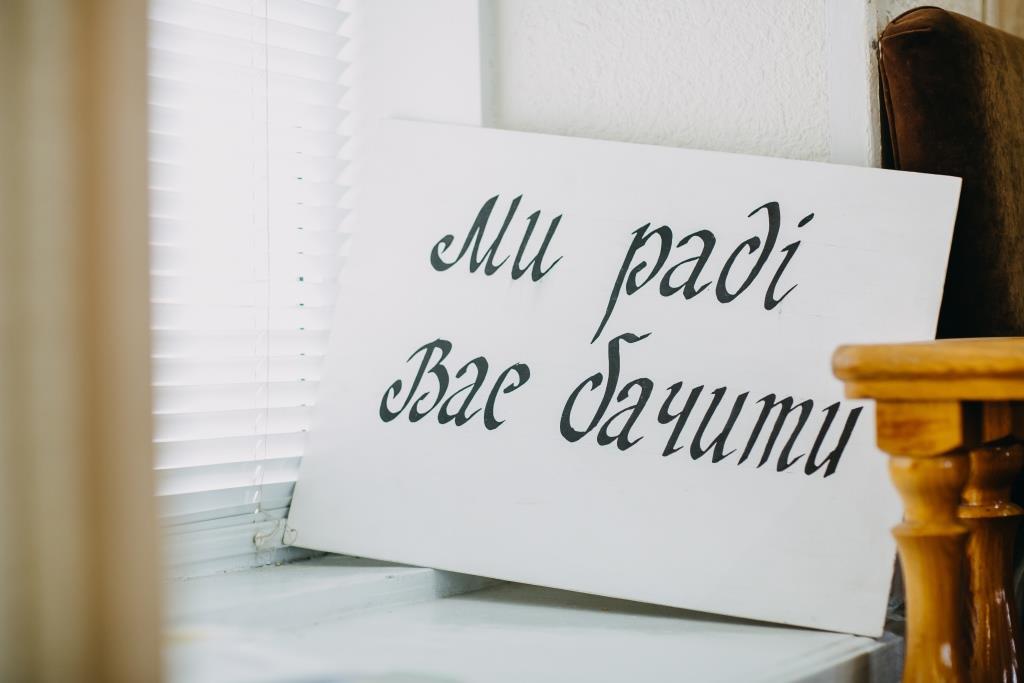 Ми раді
Вае бачити